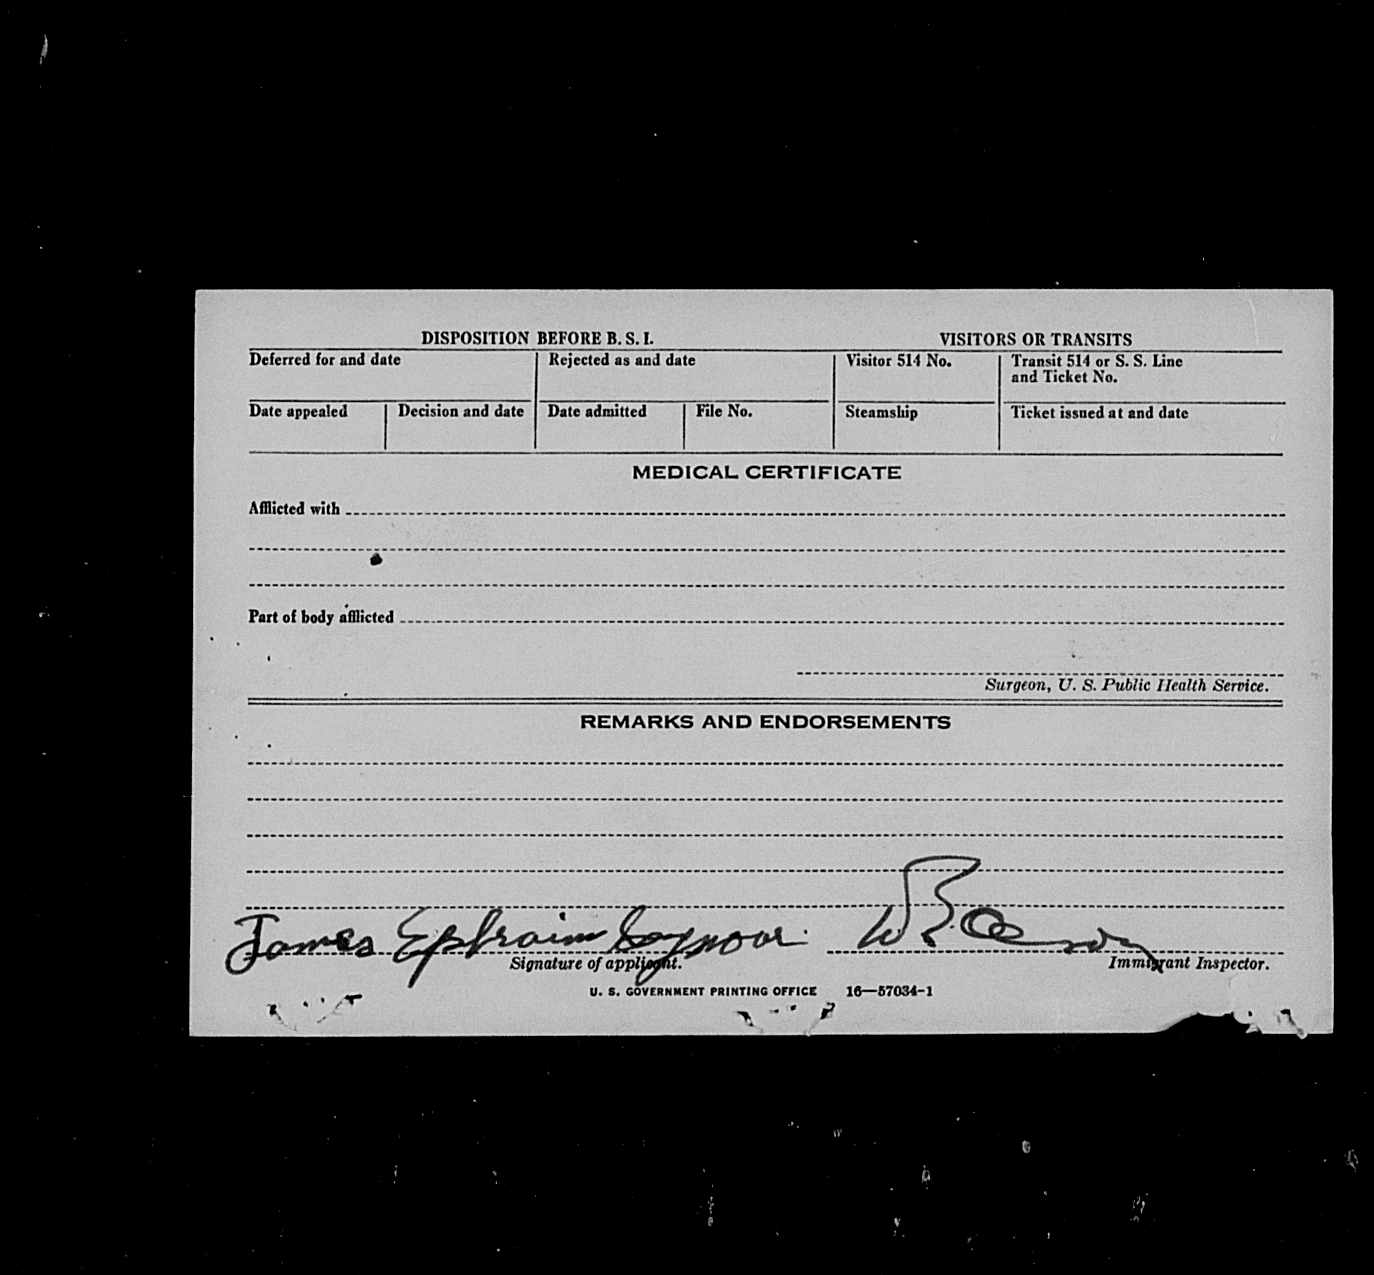 DISPOSITION BEFORE B. S. I.
VISITORS OR TRANSITS
Deferred for and date
Rejected as and date
Visitor 514 No.
Transit 514 or S. S. Line
and Ticket No.
Date appealed
Decision and date
Date admitted
File No.
Steamship
Ticket issued at and date
MEDICAL CERTIFICATE
Afflicted with
Part of body afflicted
Surgeon, U. S. Public Health Service.
REMARKS AND ENDORSEMENTS
James Ephraim Seymour
Signature of applicant.
Immigrant Inspector.
U. S. GOVERNMENT PRINTING OFFICE 16—57034-1